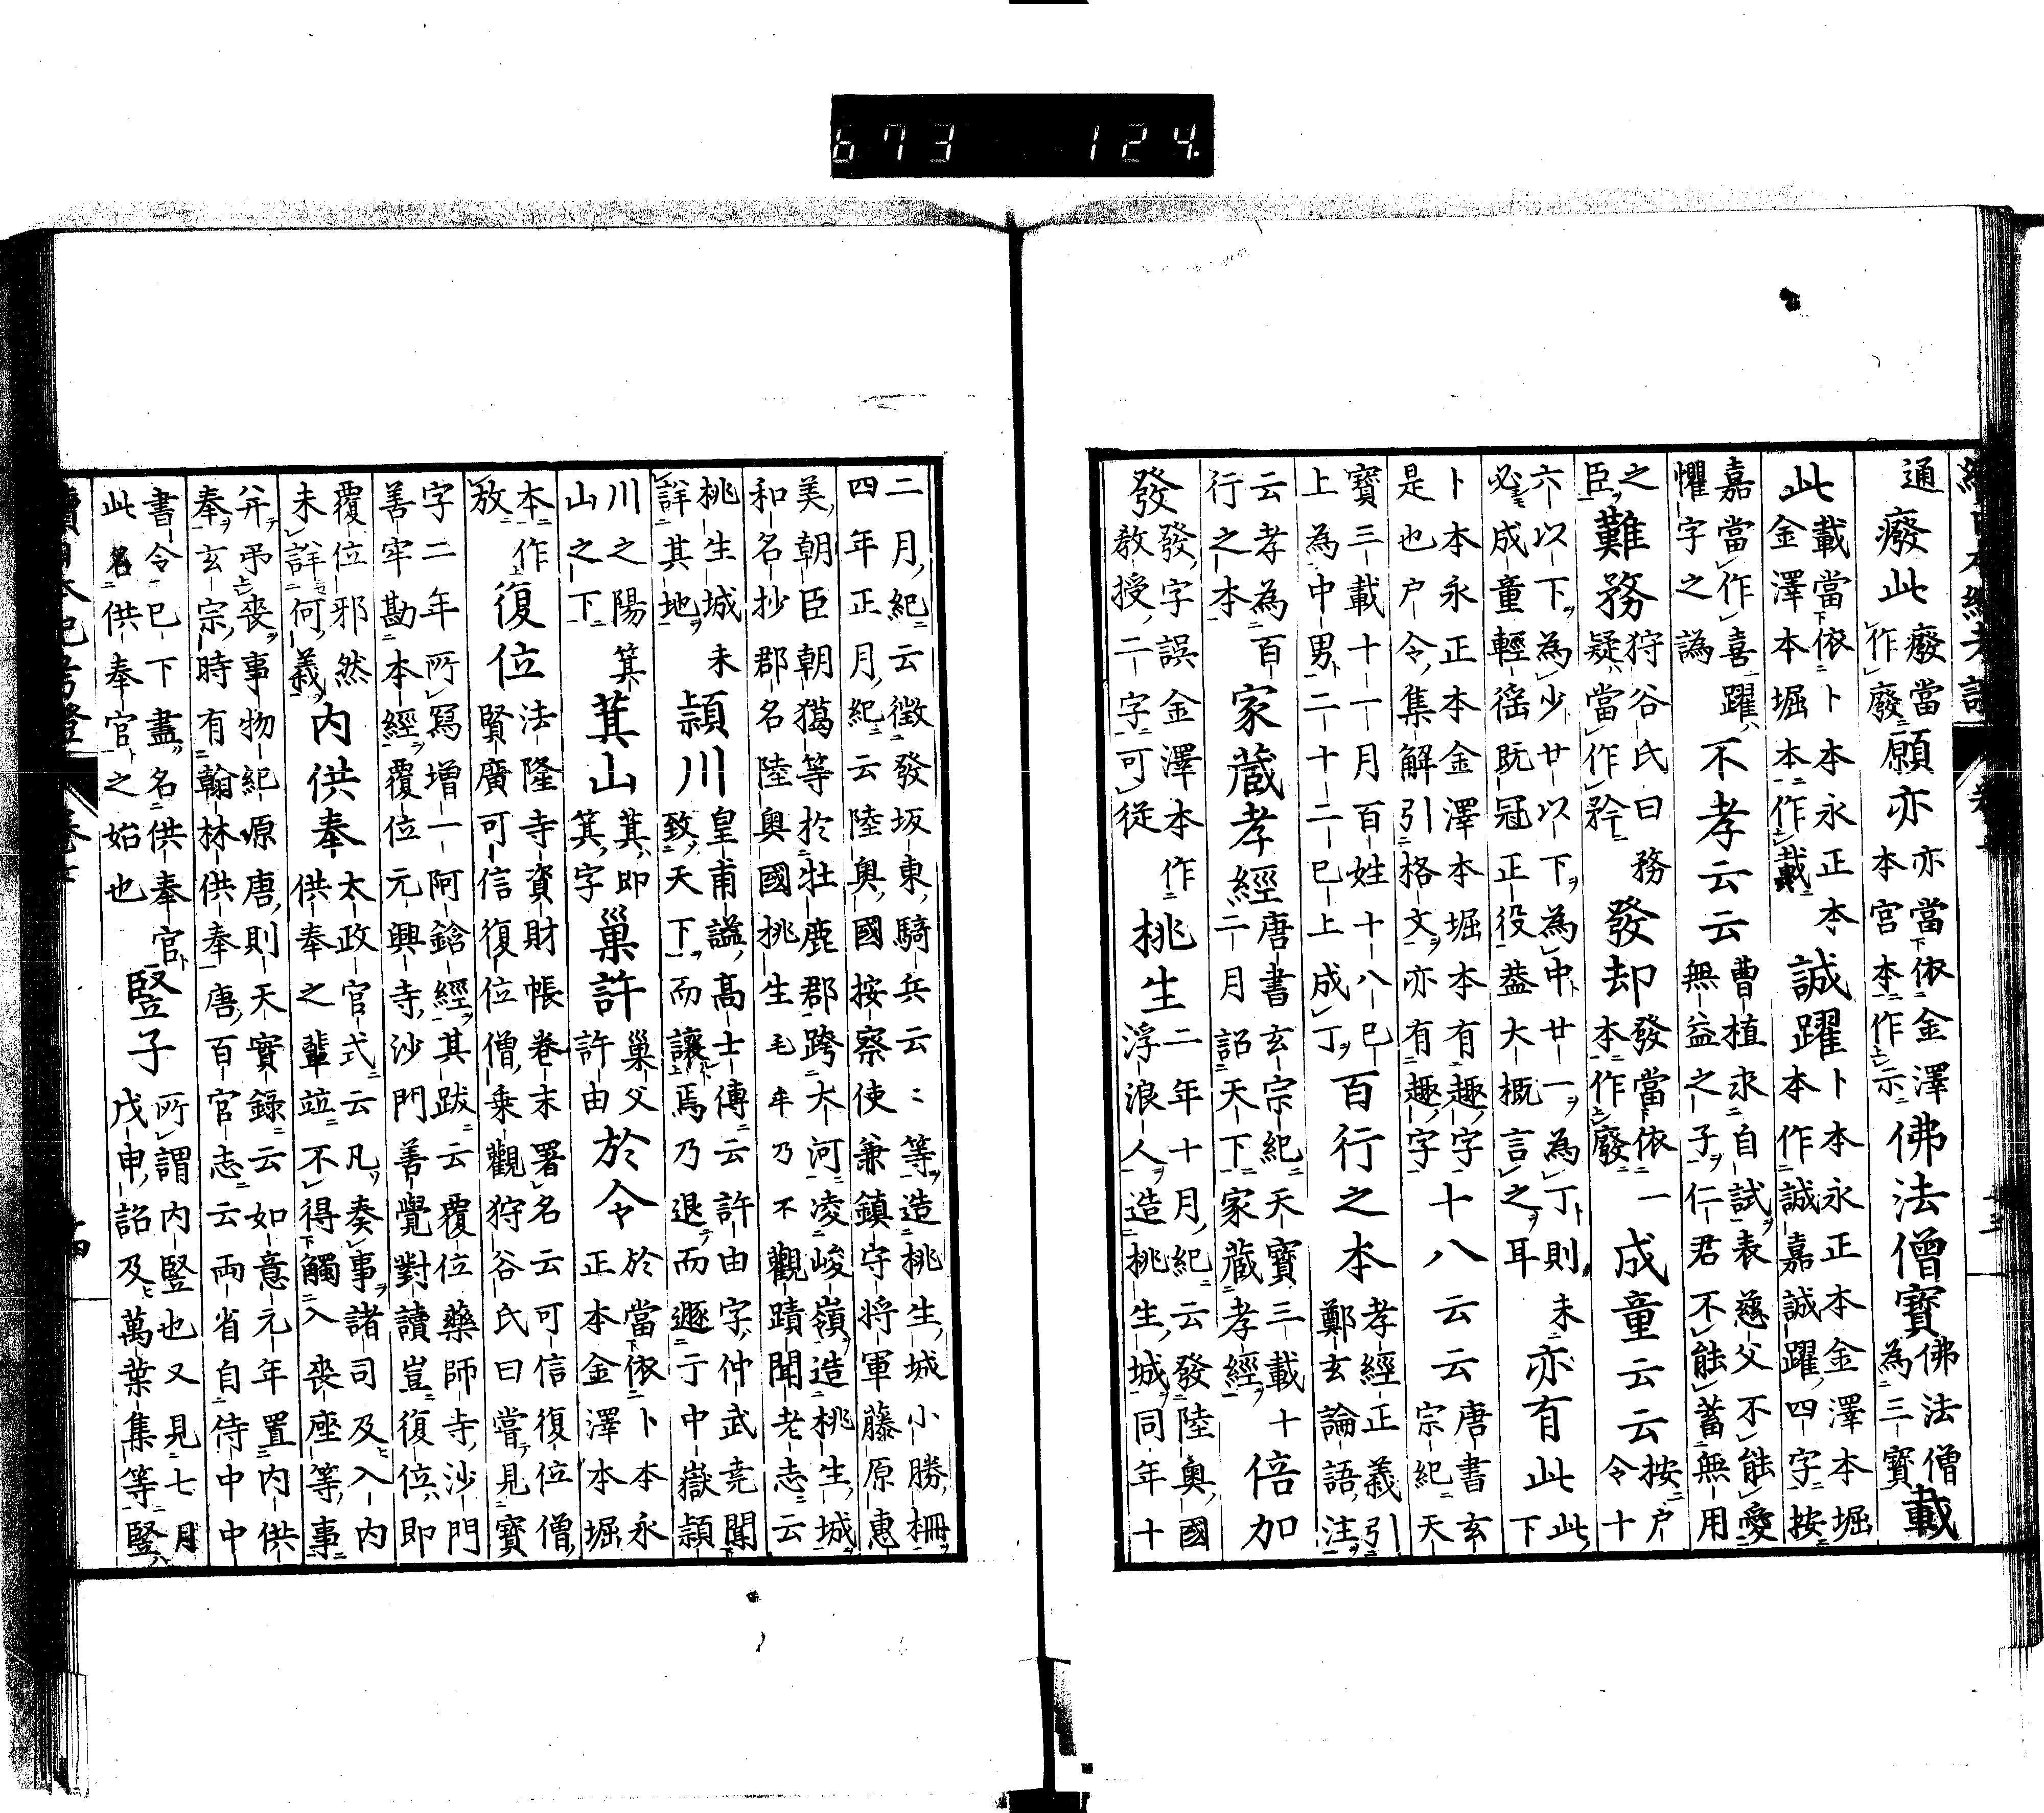 通癈此癈當作廢願亦亦當依金澤本宮本作示佛法僧寶佛法僧為三寶載
此載當依卜本永正本金澤本堀本作戴誠躍卜本永正本金澤本堀本作誠嘉誠躍四字按
嘉當作喜躍懼字之譌不孝云云曹植求自試表慈父不能愛無益之子仁君不能蓄無用
之臣難務狩谷氏曰務疑當作矜發却發當依一本作廢成童云云按戶令十
六以下為少廿以下為中廿一為丁則未必成童輕徭既冠正役葢大概言之耳亦有此此下
卜本永正本金澤本堀本有趣字是也戶令集解引格文亦有趣字十八云云唐書玄宗紀天
寶三載十一月百姓十八已上為中男二十二已上成丁百行之本孝經正義引鄭玄論語注
云孝為百行之本家藏孝經唐書玄宗紀天寶三載十二月詔天下家藏孝經倍加
發發字誤金澤本作教授二字可從桃生二年十月紀云發陸奧國浮浪人造桃生城同年十
二月紀云徵發坂東騎兵云〻等造桃生城小勝柵四年正月紀云陸奧國按察使兼鎮守将軍藤原惠
美朝臣朝獦等於牡鹿郡跨大河凌峻嶺造桃生城和名抄郡名陸奧國桃生毛牟乃不觀蹟聞老志云
桃生城未詳其地頴川皇甫謐高士傳云許由字仲武堯聞致天下而讓焉乃退而遯于中嶽頴
川之陽箕山之下萁山萁即箕字巢許巢父許由於令於當依卜本永正本金澤本堀
本作放復位法隆寺資財帳卷末署名云可信復位僧賢廣可信復位僧乗觀狩谷氏曰嘗見寶
字二年所寫增一阿鋡經其跋云覆位藥師寺沙門善牢勘本經覆位元興寺沙門善覺對讀豈復位即
覆位邪然未詳何義內供奉太政官式云凡奏事諸司及入內供奉之輩竝不得觸入喪座等事
并弔喪事物紀原唐則天實錄云如意元年置內供奉玄宗時有翰林供奉唐百官志云両省自侍中中
書令已下盡名供奉官此名供奉官之始也豎子所謂內竪也又見七月戊申詔及萬葉集等竪
673 124